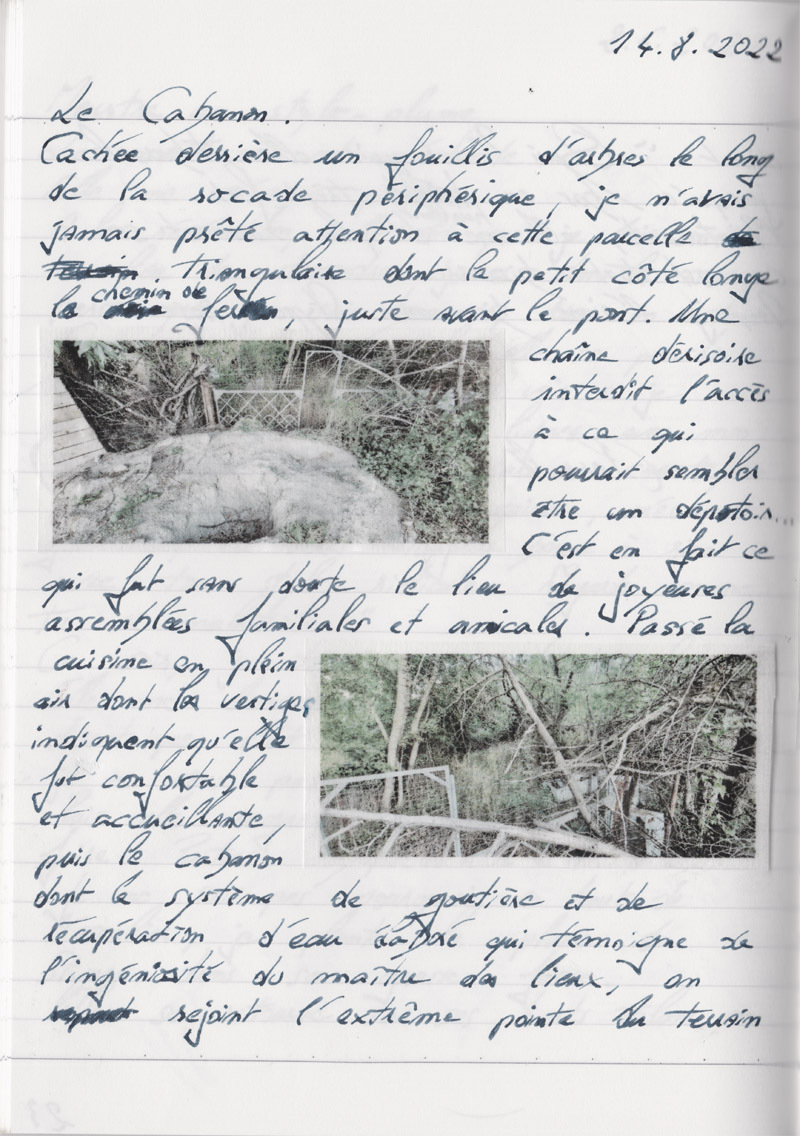 14.8.2022
Le Cabanon.
Cachée derrière un fouillis d'arbres le long
de la rocade périphérique, je n'avais
jamais prêté attention à cette parcelle
Triangulaire dont le petit côté longe
le chemin de fer, juste avant le pont. Une
chaîne dérisoire
interdit l'accès
à ce qui
pourrait sembler
être un dépotoir...
C'est en fait ce
qui fut sans doute le lieu de joyeuses
assemblées familiales et amicales. Passé la
cuisine en plein
air dont les vestiges
indiquent qu'elle
fut confortable
et accueillante,
puis le cabanon
dont le système de goutière et de
récupération d'eau qui témoigne de
l'ingéniosité du maître des lieux, on
rejoint l'extrême pointe du terrain